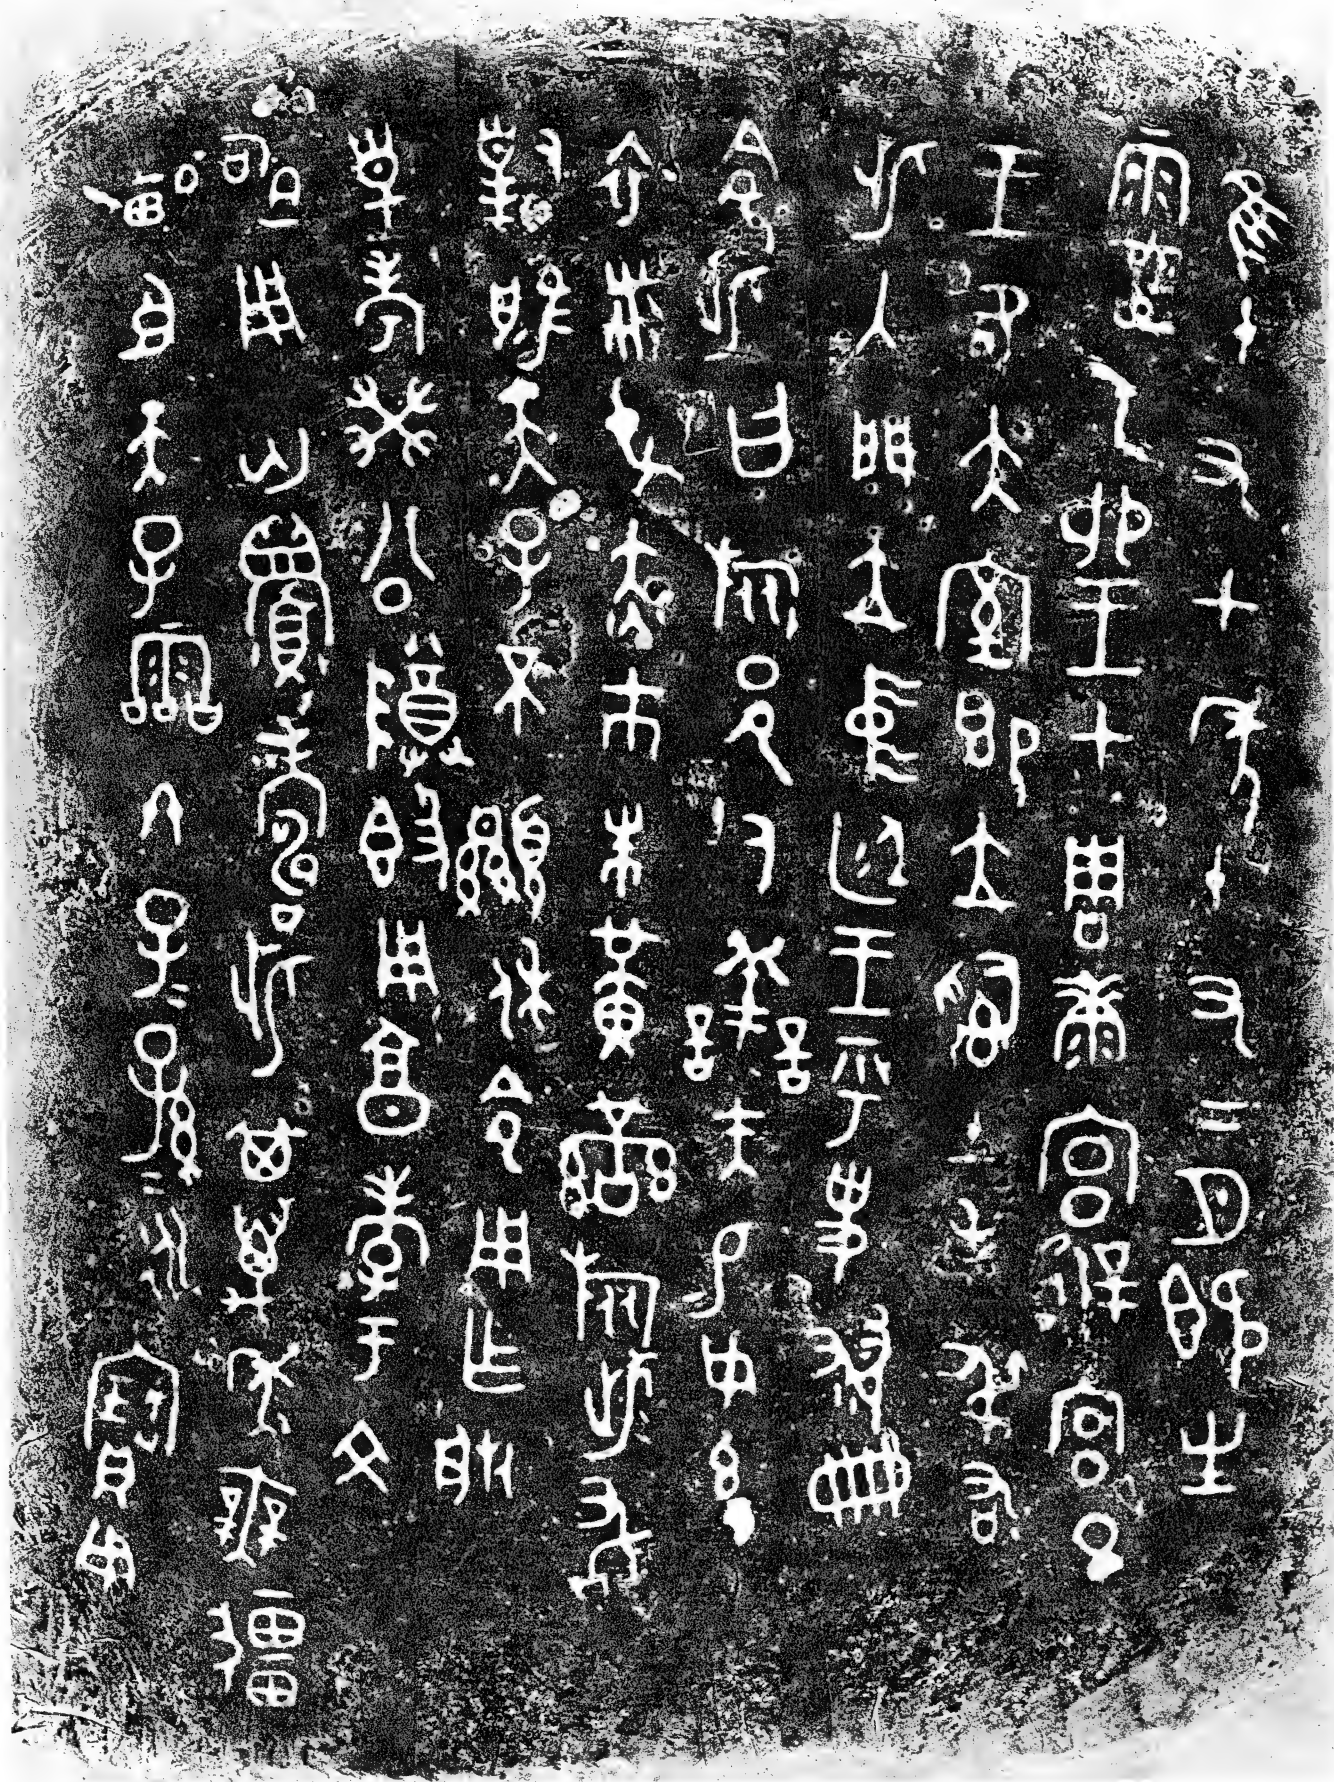 隹十又七年十又二月既生
霸乙卯王才周康宮徲宮旦
王各大室即立司土毛弔右
此入門立中廷王乎史翏冊
令此曰旅邑人善夫易女玄
衣黹屯赤市朱黃䜌旂此敢
對揚天子不顯休令用乍朕
皇考癸公尊𣪘用享孝于文
神用匄眉壽此其萬年無彊
畯臣天子霝冬子=孫=永寶用